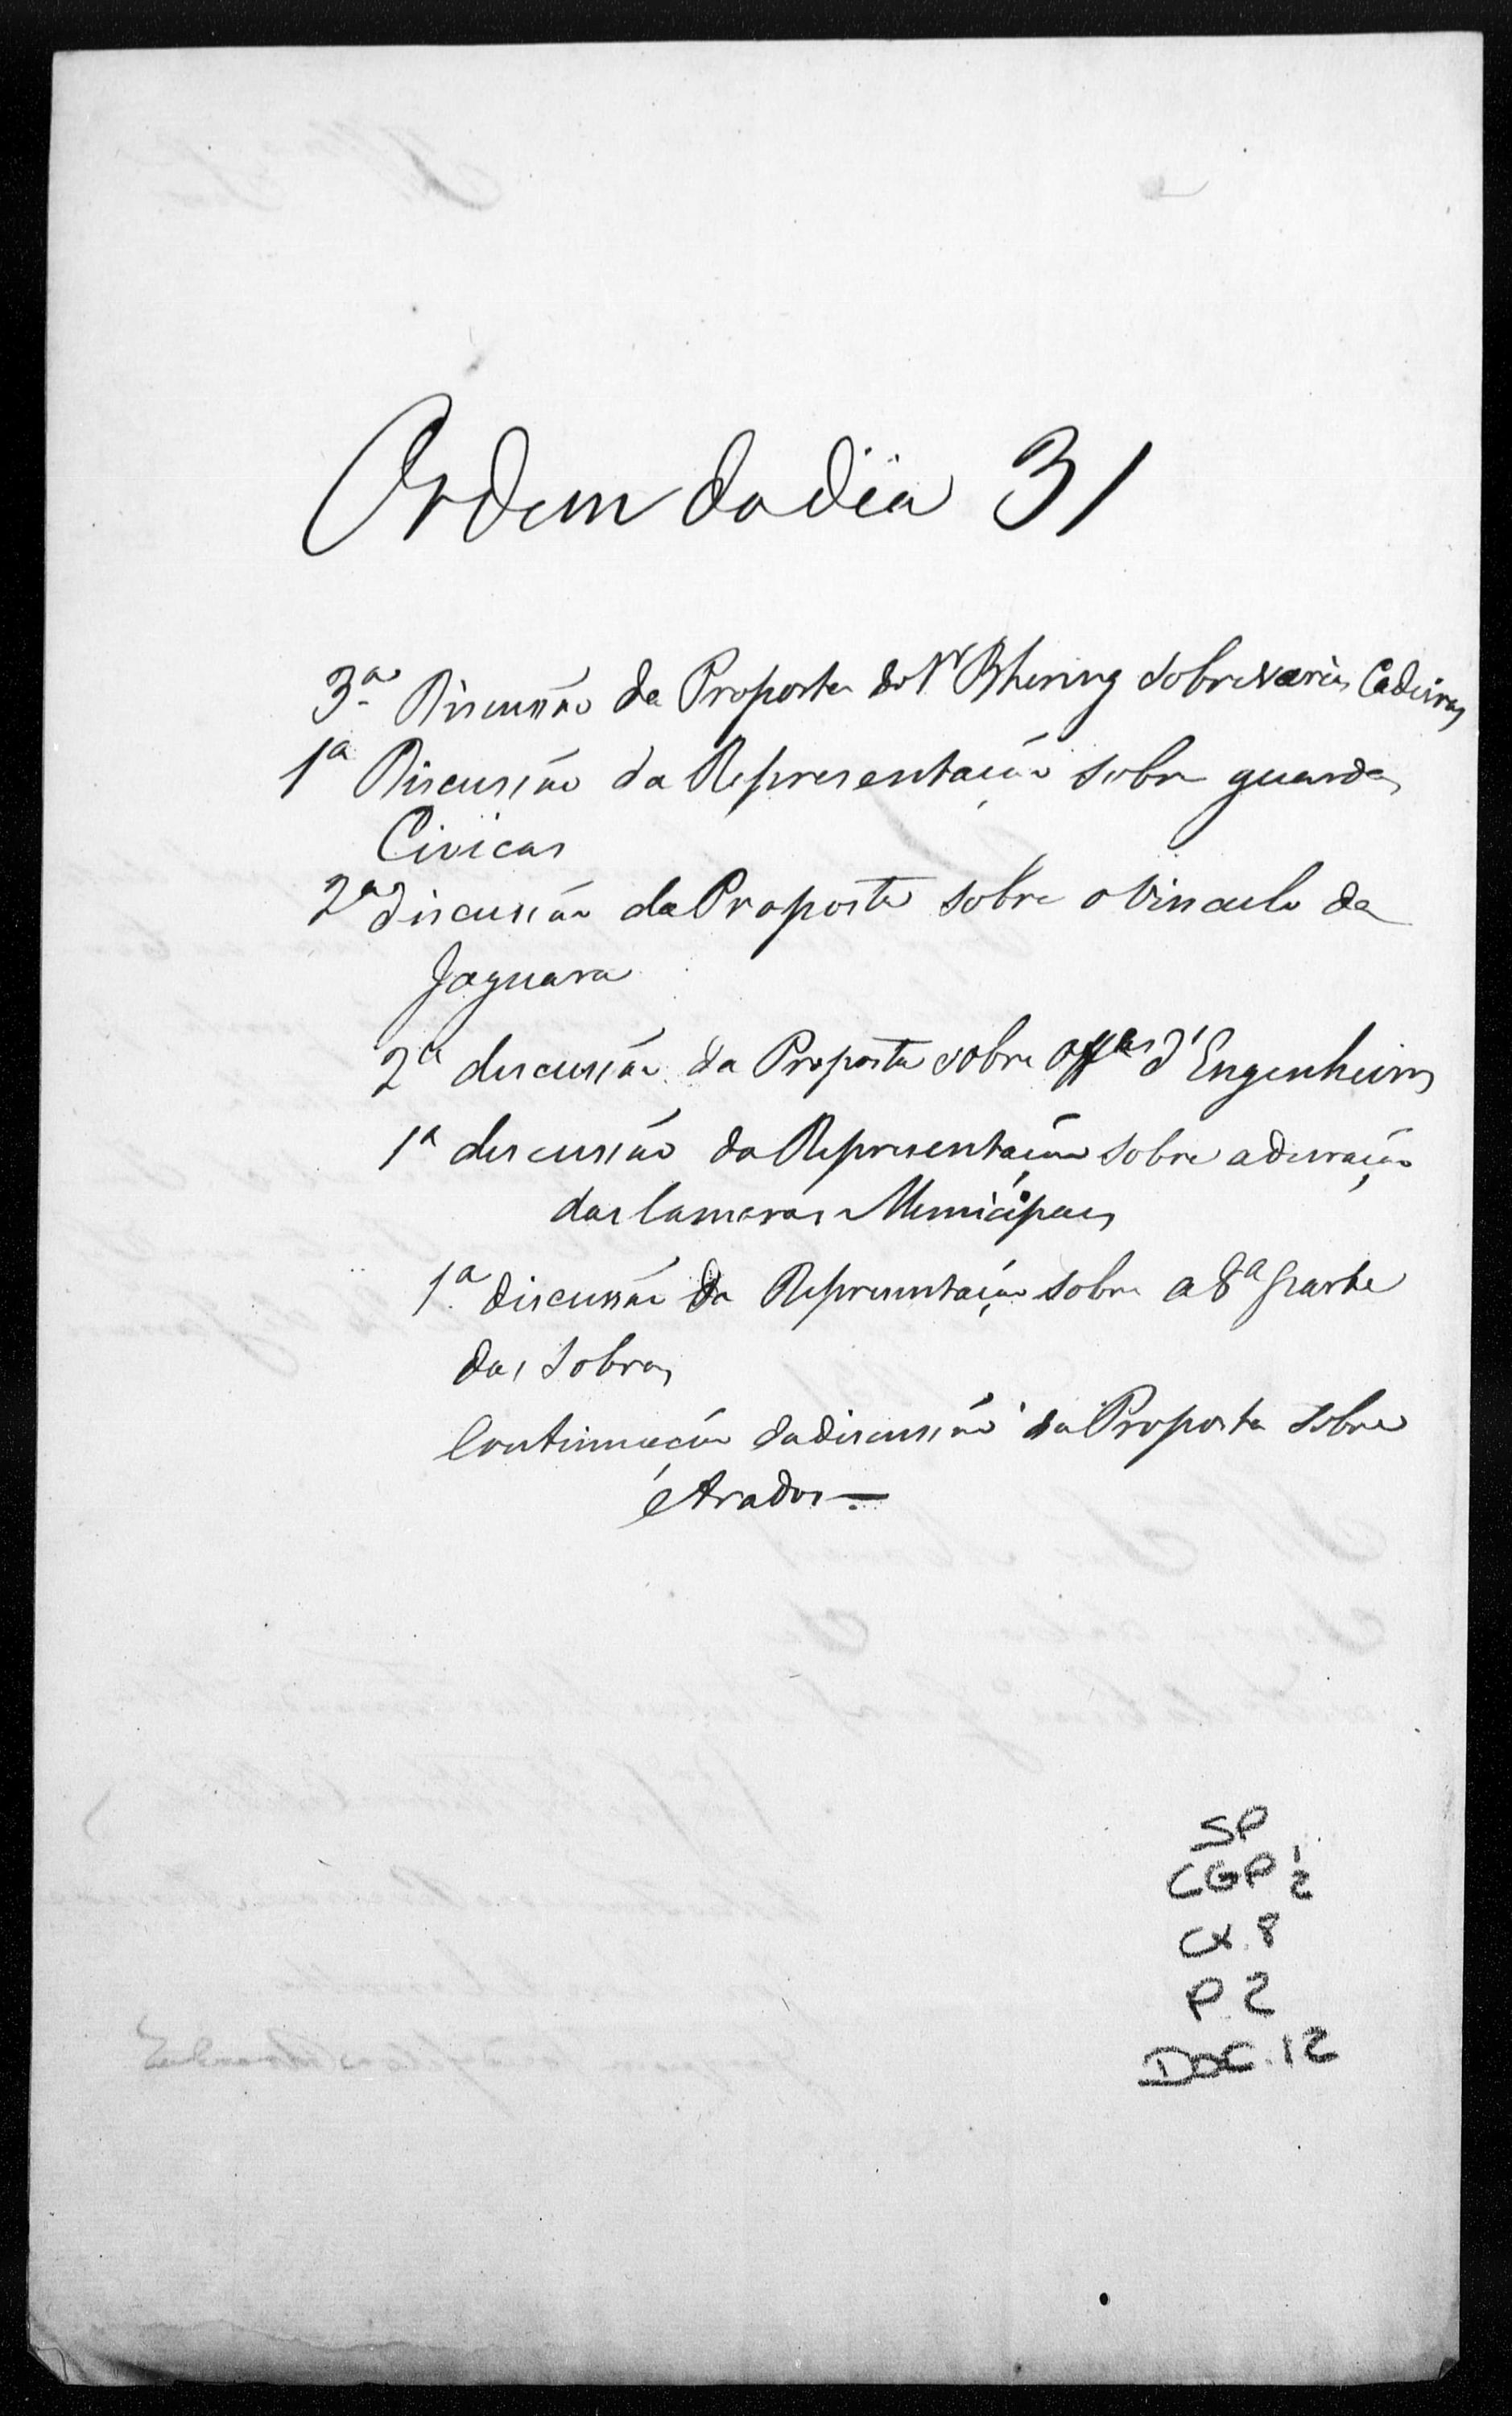 Ordem do dia 31
3ª Discussão da Proposta do Sr Bhering sobre varias Cadeiras
1ª Discussão da Representação sobre guardas
Civicas
2ª discussão da Proposta sobre o Vinculo da
Jaguara
2ª discussão da Proposta sobre d'Engenheiros
1ª discussão da Representação sobre a duração
das Camaras Municipaes
1ª discussão da Representação sobre a 8ª parte
das sobras
Continuação da discussão da Proposta sobre
SP
CGP 1/2
CX. 8
P. 2
DOC. 12